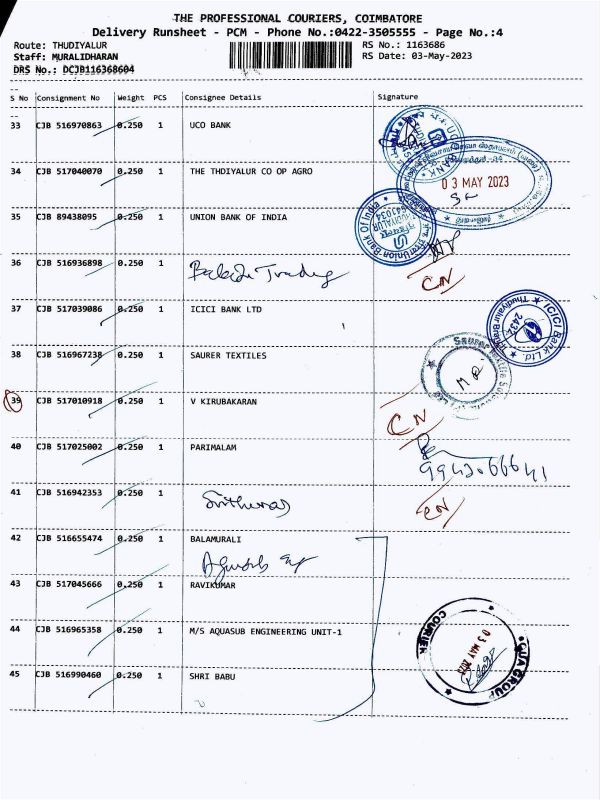 THE PROFESSIONAL COURIERS, COIMBATORE
Delivery Runsheet - PCM - Phone No.:0422-3505555 - Page No.:4
Route: THUDIYALUR RS No.: 1163686
Staff: MURALIDHARAN RS Date: 03-May-2023
DRS No.: DCJB116368604
S No Consignment No Weight PCS Consignee Details Signature
33 CJB 516970863 0.250 1 UCO BANK
34 CJB 517040070 0.250 1 THE THDIYALUR CO OP AGRO
03 MAY 2023
35 CJB 89438095 0.250 1 UNION BANK OF INDIA
Union Bank Of India
36 CJB 516936898 0.250 1 Balaji Trading
CN
37 CJB 517039086 0.250 1 ICICI BANK LTD
ICICI Bank Ltd.
Thudiyalur Branch
2434
38 CJB 516967238 0.250 1 SAURER TEXTILES
Saurer Textile Solutions
39 CJB 517010918 0.250 1 V KIRUBAKARAN
CN
40 CJB 517025002 0.250 1 PARIMALAM
41 CJB 516942353 0.250 1
CN
42 CJB 516655474 0.250 1 BALAMURALI
43 CJB 517045666 0.250 1 RAVIKUMAR
44 CJB 516965358 0.250 1 M/S AQUASUB ENGINEERING UNIT-1
COURIER
03 MAY 2023
45 CJB 516990460 0.250 1 SHRI BABU